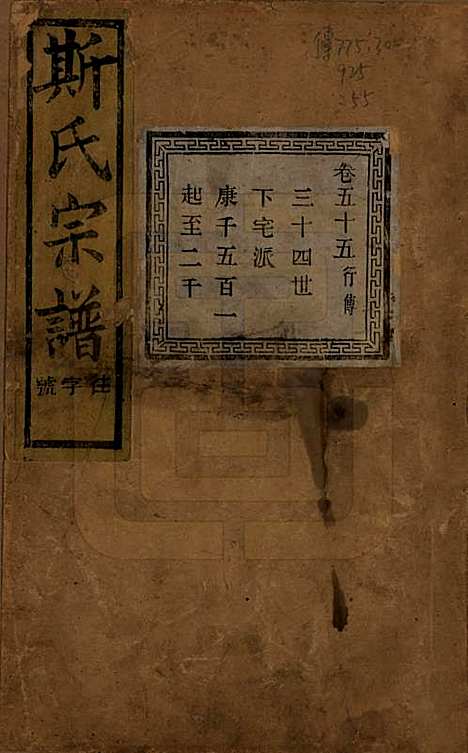 斯氏宗譜
往字號
卷五十五行傳
三十四世
下宅派
康千五百一
起至二千
傳775.30
925
255